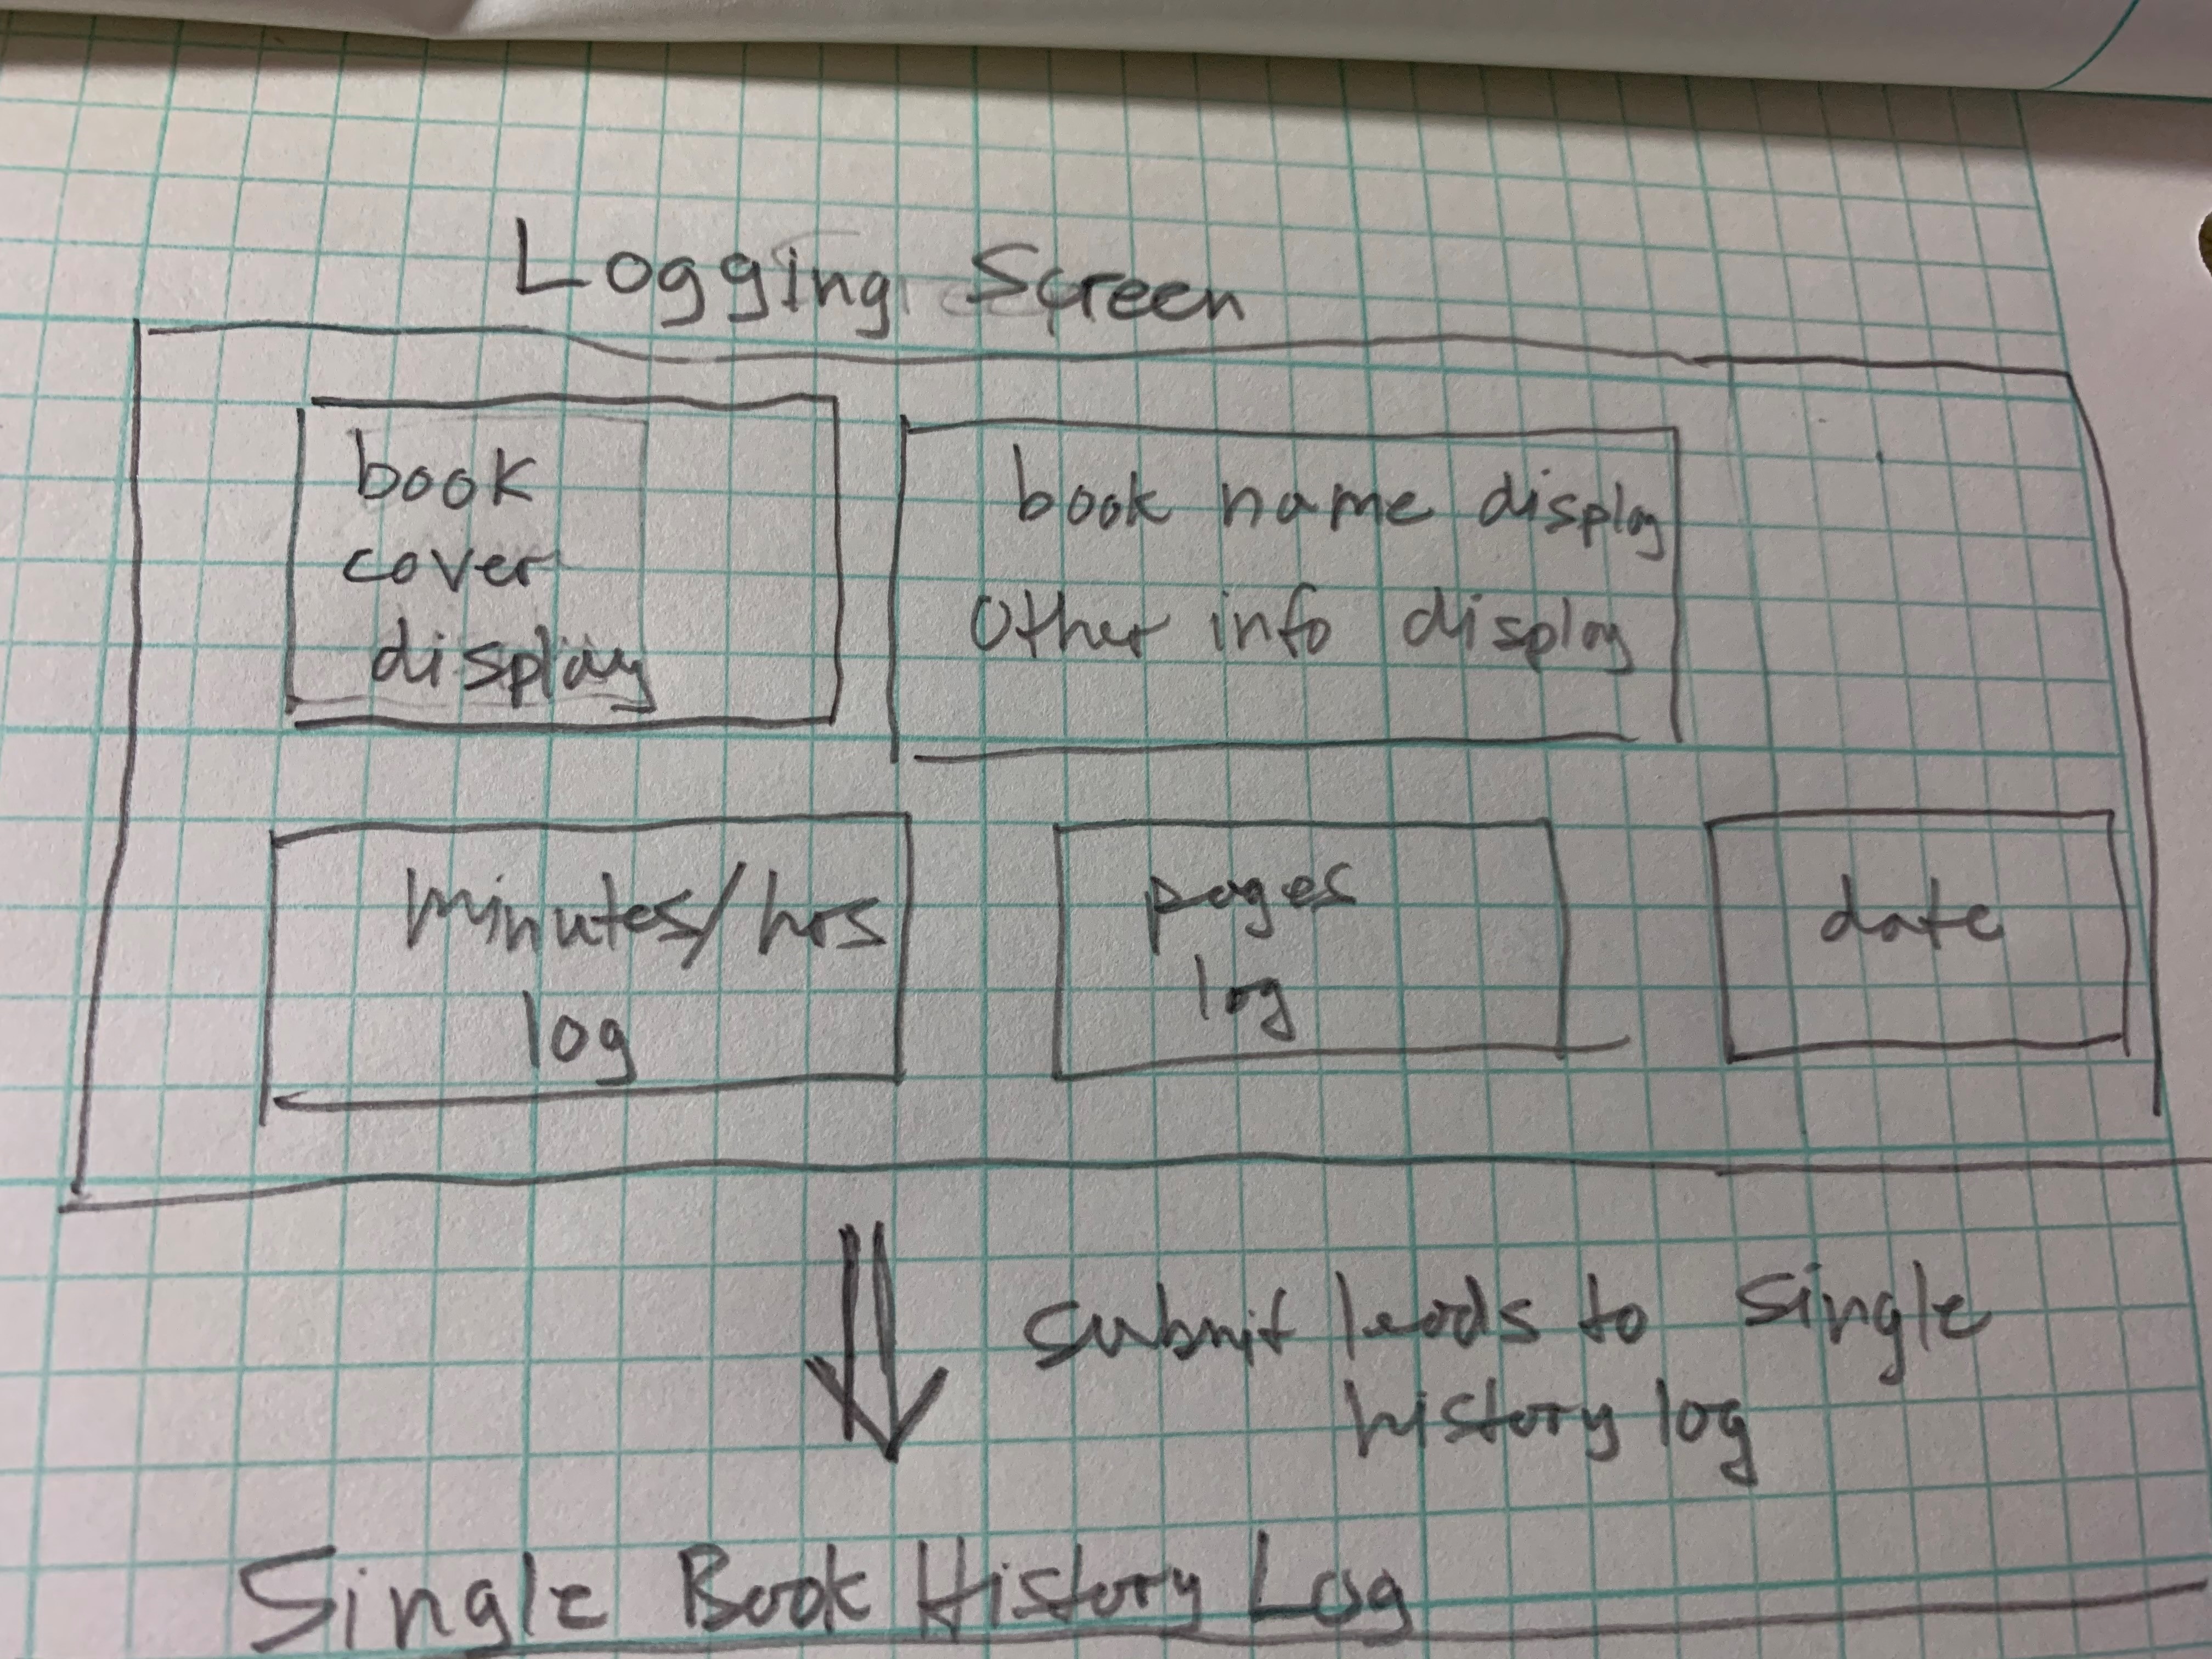 Logging Screen
book
cover
display
book name display
Other info display
minutes/hrs
log
pages
log
date
submit leads to single
history log
Single Book History Log